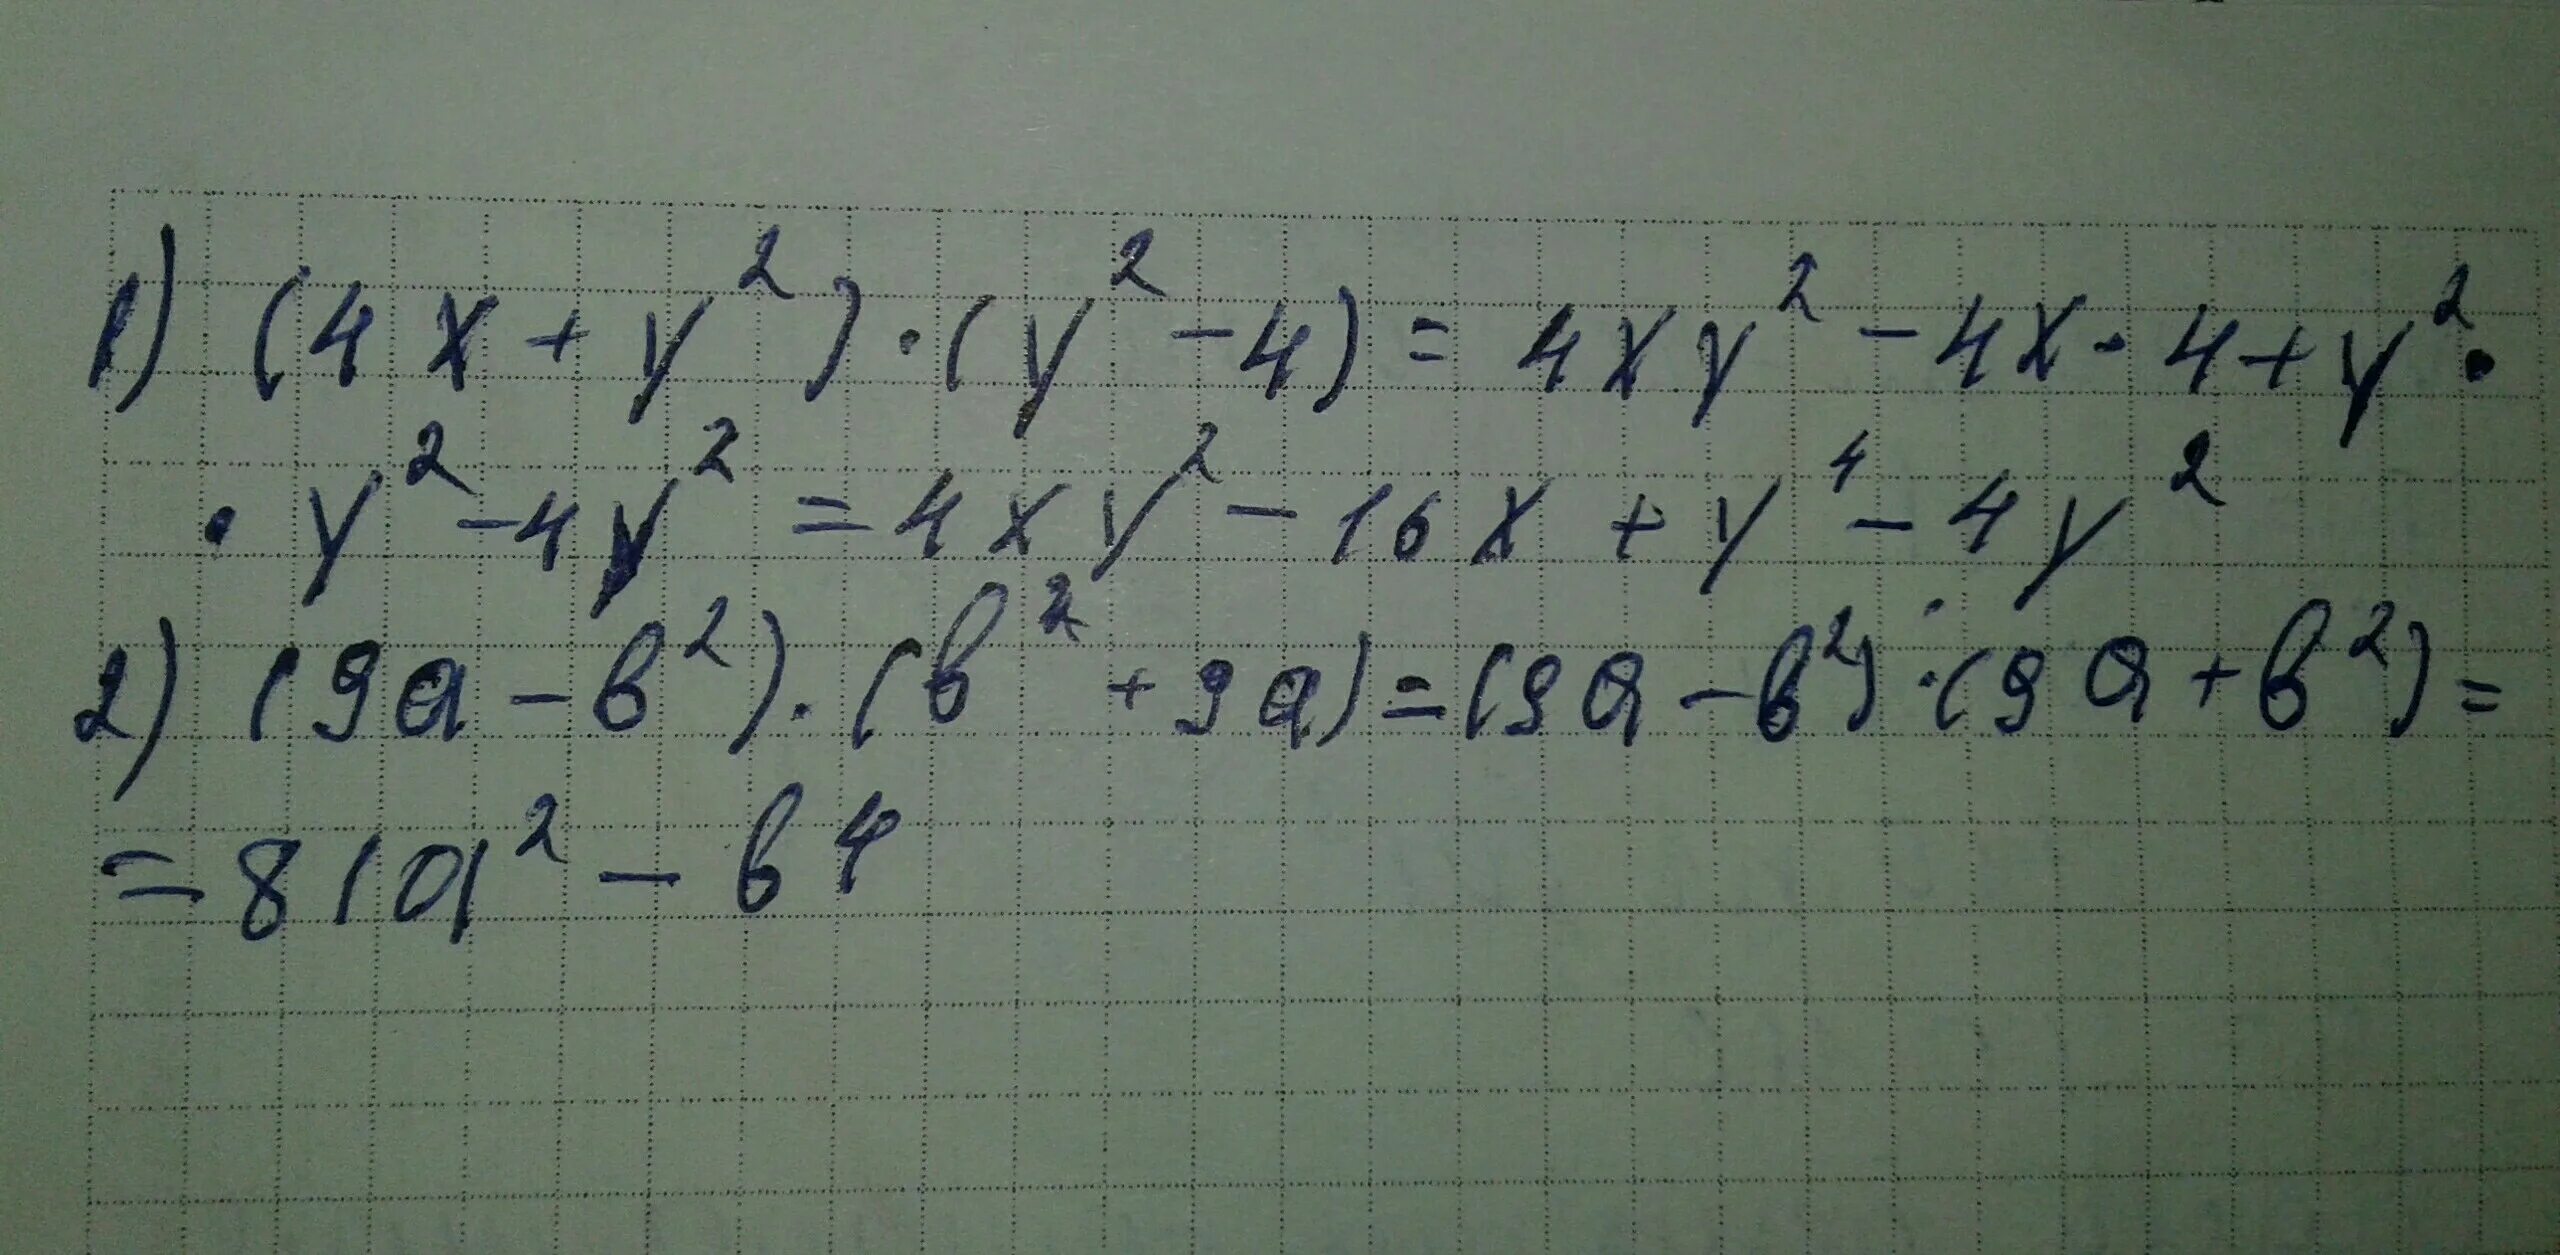 1) (4x + y²) · (y² - 4) = 4xy² - 4x · 4 + y² ·
· y² - 4y² = 4xy² - 16x + y⁴ - 4y²
2) (9a - b²) · (b² + 9a) = (9a - b²) · (9a + b²) =
= 81a² - b⁴